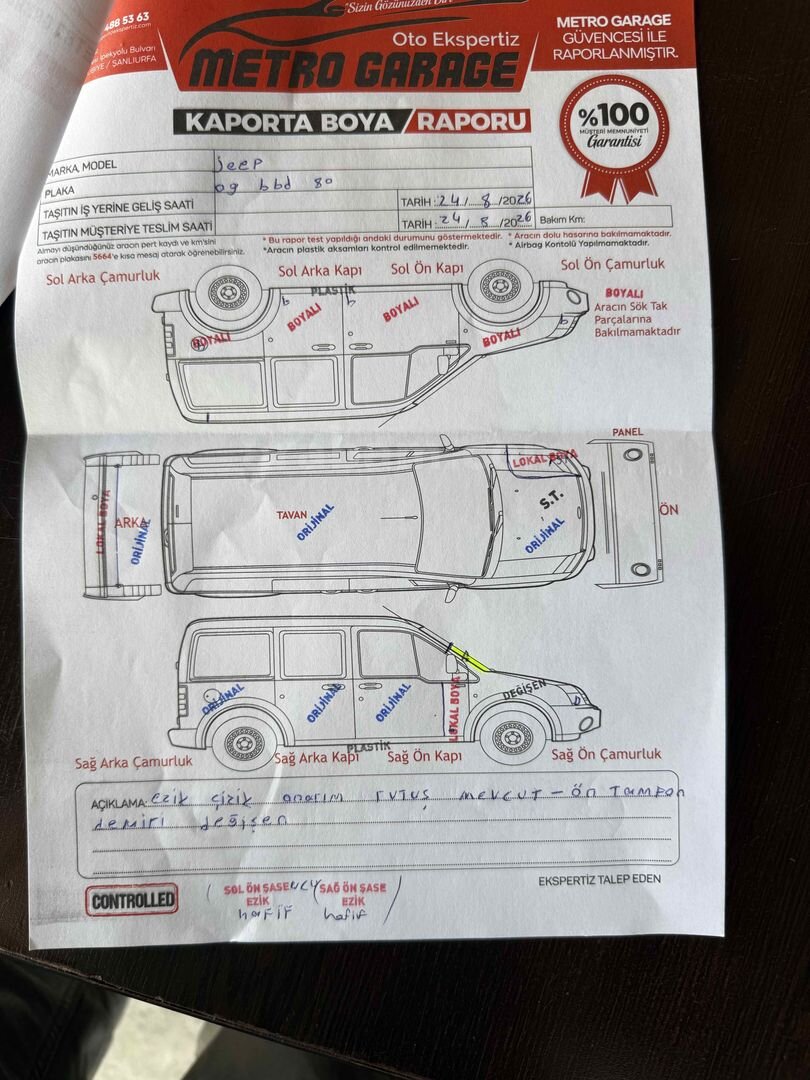 "Sizin Gözünüzden
488 53 63
Oto Ekspertiz
METRO GARAGE
METRO GARAGE
GÜVENCESİ İLE
RAPORLANMIŞTIR.
İpekyolu Bulvarı
/ ŞANLIURFA
KAPORTA BOYA / RAPORU
%100
MÜŞTERİ MEMNUNİYETİ
Garantisi
MARKA, MODEL jeep
PLAKA 09 bbd 80
TAŞITIN İŞ YERİNE GELİŞ SAATİ TARİH : 24 / 8 /2026
TAŞITIN MÜŞTERİYE TESLİM SAATİ TARİH : 24 / 8 /2026 Bakım Km:
Almayı düşündüğünüz aracın pert kaydı ve km'sini
aracın plakasını 5664'e kısa mesaj atarak öğrenebilirsiniz.
* Bu rapor test yapıldığı andaki durumunu göstermektedir. * Aracın dolu hasarına bakılmamaktadır.
*Aracın plastik aksamları kontrol edilmemektedir. * Airbag Kontolü Yapılmamaktadır.
Sol Arka Çamurluk Sol Arka Kapı Sol Ön Kapı Sol Ön Çamurluk
PLASTİK
b b b
BOYALI BOYALI BOYALI BOYALI
BOYALI
Aracın Sök Tak
Parçalarına
Bakılmamaktadır
PANEL
LOKAL BOYA
S.T.
LOKAL BOYA
ARKA
ORİJİNAL
TAVAN
ORİJİNAL
ORİJİNAL
ÖN
ORİJİNAL ORİJİNAL ORİJİNAL
LOKAL BOYA
DEĞİŞEN
PLASTİK
Sağ Arka Çamurluk Sağ Arka Kapı Sağ Ön Kapı Sağ Ön Çamurluk
AÇIKLAMA: ezik çizik onarım rutuş mevcut - ön tampon
demiri değişen
EKSPERTİZ TALEP EDEN
CONTROLLED
SOL ÖN ŞASE UCU SAĞ ÖN ŞASE
EZİK EZİK
hafif hafif